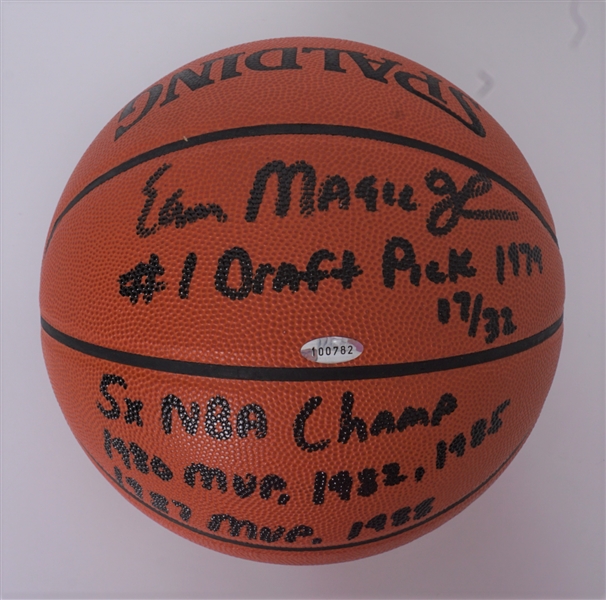 SPALDING
Earvin Magic Johnson
#1 Draft Pick 1979
17/32
100782
5x NBA Champ
1980 MVP, 1982, 1985
1987 MVP, 1988